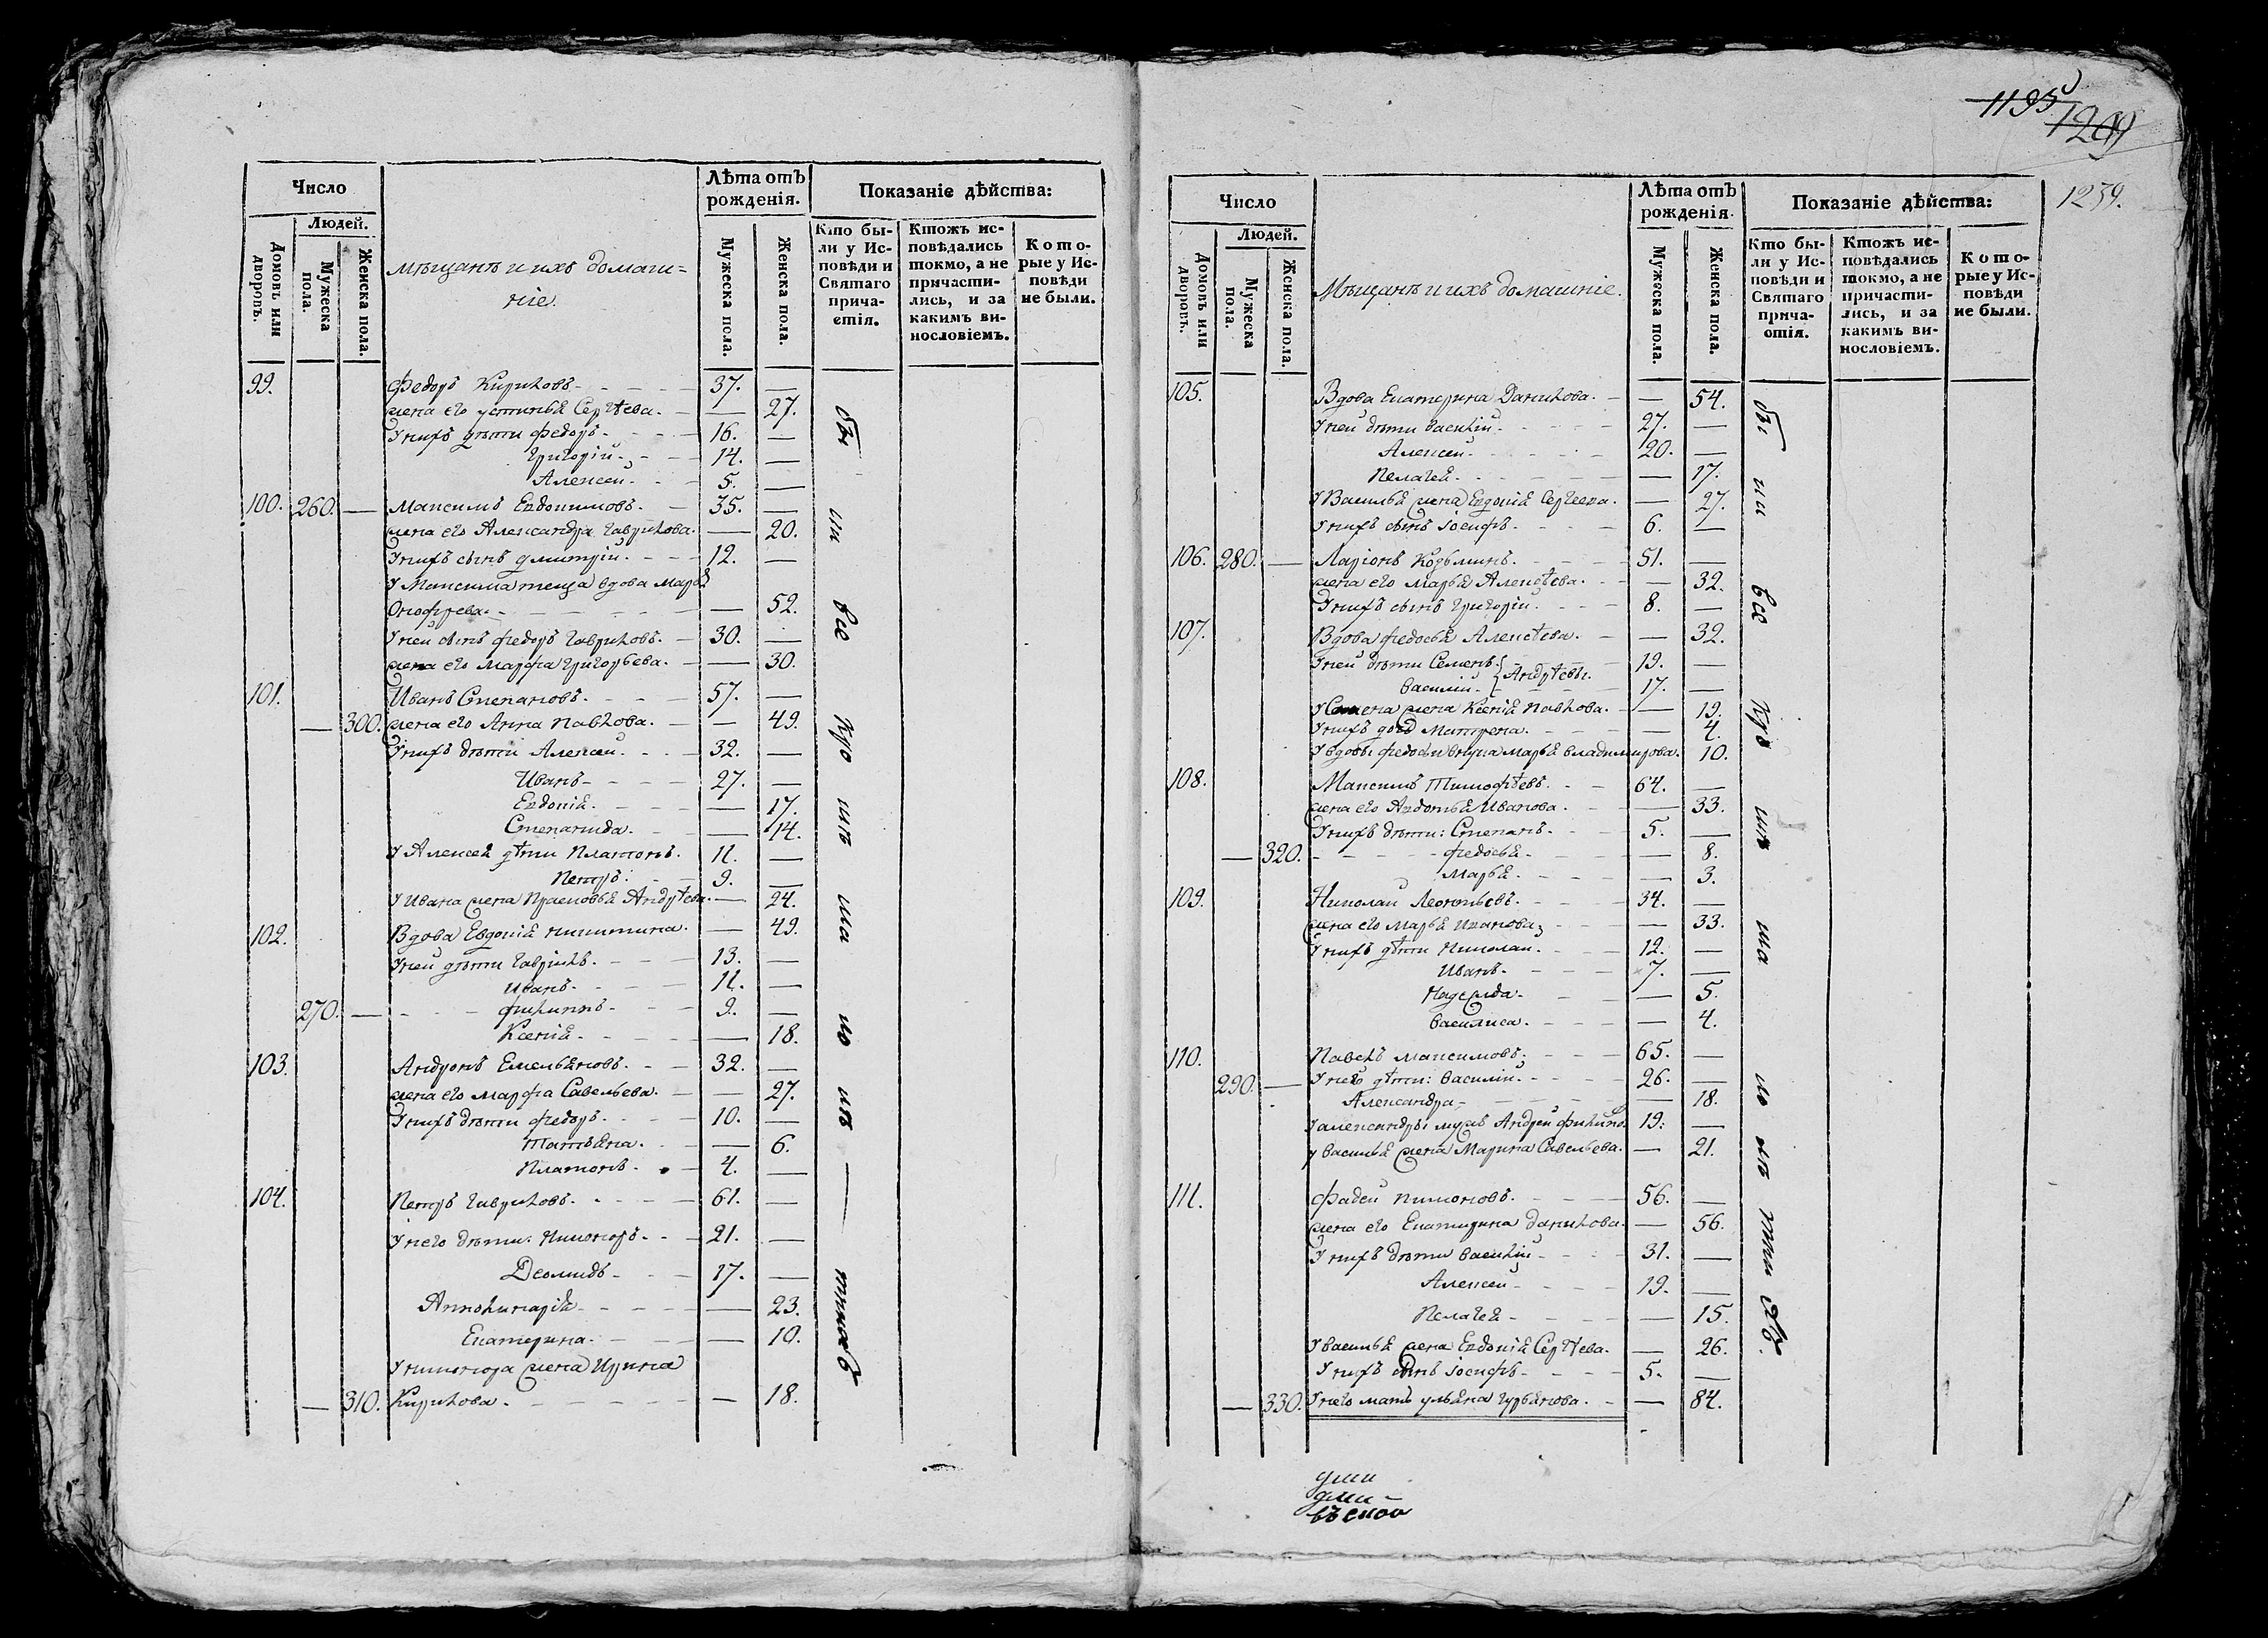 Число
Людей.
Домовъ или дворовъ.
Мужеска пола.
Женска пола.
Мѣщанъ и ихъ домаш=
ніе.
Лѣта отъ рожденія.
Мужеска пола.
Женска пола.
Показаніе дѣйства:
Кто бы-
ли у Ис-
повѣди и
Святаго
прича-
стія.
Ктожъ ис-
повѣдались
токмо, а не
причасти-
лись, и за
какимъ ви-
нословіемъ.
Кото-
рые у Ис-
повѣди
не были.
99. Федоръ Кириловъ 37. —
жена его Устинья Сергѣева. — 27.
У нихъ дѣти Федоръ 16. —
Григорій 14. —
Алексей 5. —
100. 260. — Максимъ Евдокимовъ 35. —
жена его Александра Гаврилова. — 20.
У нихъ сынъ Дмитрій 12. —
У Максима теща вдова Марья
Онофрева — 52.
У ней сынъ Федоръ Гавриловъ. 30. —
жена его Марфа Григорьева. — 30.
101. Иванъ Степановъ 57. —
— 300. жена его Анна Павлова. — 49.
У нихъ дѣти Алексей 32. —
Иванъ 27. —
Евдокія — 17.
Степанида — 14.
У Алексея дѣти Платонъ. 11. —
Петръ 9. —
У Ивана жена Прасковья Андрѣева — 24.
102. Вдова Евдокія Никитина. — 49.
У ней дѣти Гаврилъ 13. —
Иванъ 11. —
270. — Филиппъ 9. —
Ксенія — 18.
103. Андронъ Емельяновъ. 32. —
жена его Марфа Савельева. — 27.
У нихъ дѣти Федоръ. 10. —
Татьяна. — 6.
Платонъ. 4. —
104. Петръ Гавриловъ. 61. —
У него дѣти: Никоноръ. 21. —
Деомидъ 17. —
Апполинарія — 23.
Екатерина. — 10.
У Никонора жена Ирина
— 310. Кирилова. — 18.
бы ли все
1195
1209
1259.
Число
Людей.
Домовъ или дворовъ.
Мужеска пола.
Женска пола.
Мѣщанъ и ихъ домашніе.
Лѣта отъ рожденія.
Мужеска пола.
Женска пола.
Показаніе дѣйства:
Кто бы-
ли у Ис-
повѣди и
Святаго
прича-
стія.
Ктожъ ис-
повѣдались
токмо, а не
причасти-
лись, и за
какимъ ви-
нословіемъ.
Кото-
рые у Ис-
повѣди
не были.
105. Вдова Екатерина Данилова. — 54.
У ней дѣти Василій 27. —
Алексей 20. —
Пелагея — 17.
У Василья жена Евдокія Сергеева. — 27.
У нихъ сынъ Іосифъ. 6. —
106. 280. — Ларіонъ Козьминъ. 51. —
жена его Марья Алексѣева. — 32.
У нихъ сынъ Григорій. 8. —
107. Вдова Федосья Алексѣева. — 32.
У ней дѣти Семенъ 19. —
Василій Андрѣевы. 17. —
У Семена жена Ксенія Павлова. — 19.
У нихъ дочь Матрена. — 4.
У вдовы Федосьи внука Марья Владимирова. 10.
108. Максимъ Тимофѣевъ. 64. —
жена его Авдотья Иванова. — 33.
У нихъ дѣти: Степанъ. 5. —
— 320. Федосья — 8.
Марья — 3.
109. Николай Леонтьевъ. 34. —
жена его Марья Иванова — 33.
У нихъ дѣти Николай. 12. —
Иванъ. 7. —
Надежда. — 5.
Василиса. — 4.
110. Павелъ Максимовъ 65. —
290. — У него дѣти: Василій. 26. —
Александра — 18.
У Александры мужъ Андрей Филипо. 19. —
У Василья жена Марина Савельева. — 21.
111. Фадей Пимоновъ. 56. —
жена его Екатерина Данилова. — 56.
У нихъ дѣти Василій 31. —
Алексей 19. —
Пелагея — 15.
У Василья жена Евдокія Сергѣева. — 26.
У нихъ сынъ Іосифъ 5. —
— 330. У него мать Ульяна Гурьянова. — 84.
бы ли все